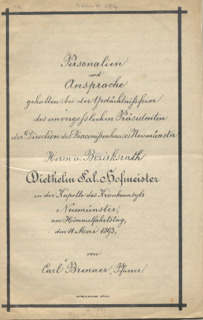 Personalien
und
Ansprache
gehalten bei der Gedächtnißfeier
des unvergesslichen Präsidenten
der Direction des Diaconissenhauses Neumünster
Herrn a. Bezirksrath
Diethelm Sal. Hofmeister
in der Kapelle des Krankenasyls
Neumünster,
am Himmelfahrtstag,
den 11. Mai 1893,
von
Carl Brenner, Pfarrer